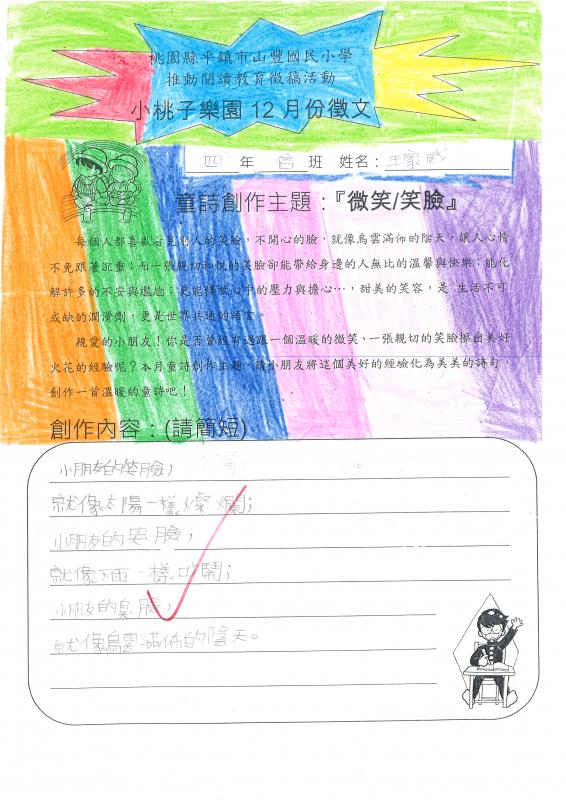 桃園縣平鎮市山豐國民小學
推動閱讀教育徵稿活動
小桃子樂園 12 月份徵文
四 年 信 班 姓名：王家
童詩創作主題：『微笑/笑臉』
每個人都喜歡看見別人的笑臉，不開心的臉，就像烏雲滿佈的陰天，讓人心情
不免跟著沉重；而一張親切和悅的笑臉卻能帶給身邊的人無比的溫馨與快樂；能化
解許多的不安與尷尬；更能釋放心中的壓力與擔心…，甜美的笑容，是 生活不可
或缺的潤滑劑，更是世界共通的語言。
親愛的小朋友！你是否曾經有過跟一個溫暖的微笑、一張親切的笑臉擦出美好
火花的經驗呢？本月童詩創作主題，請小朋友將這個美好的經驗化為美美的詩句，
創作一首溫暖的童詩吧！
創作內容：(請簡短)
小朋友的笑臉，
就像太陽一樣燦爛；
小朋友的哭臉，
就像下雨一樣吵鬧；
小朋友的臭臉，
就像烏雲滿佈的陰天。